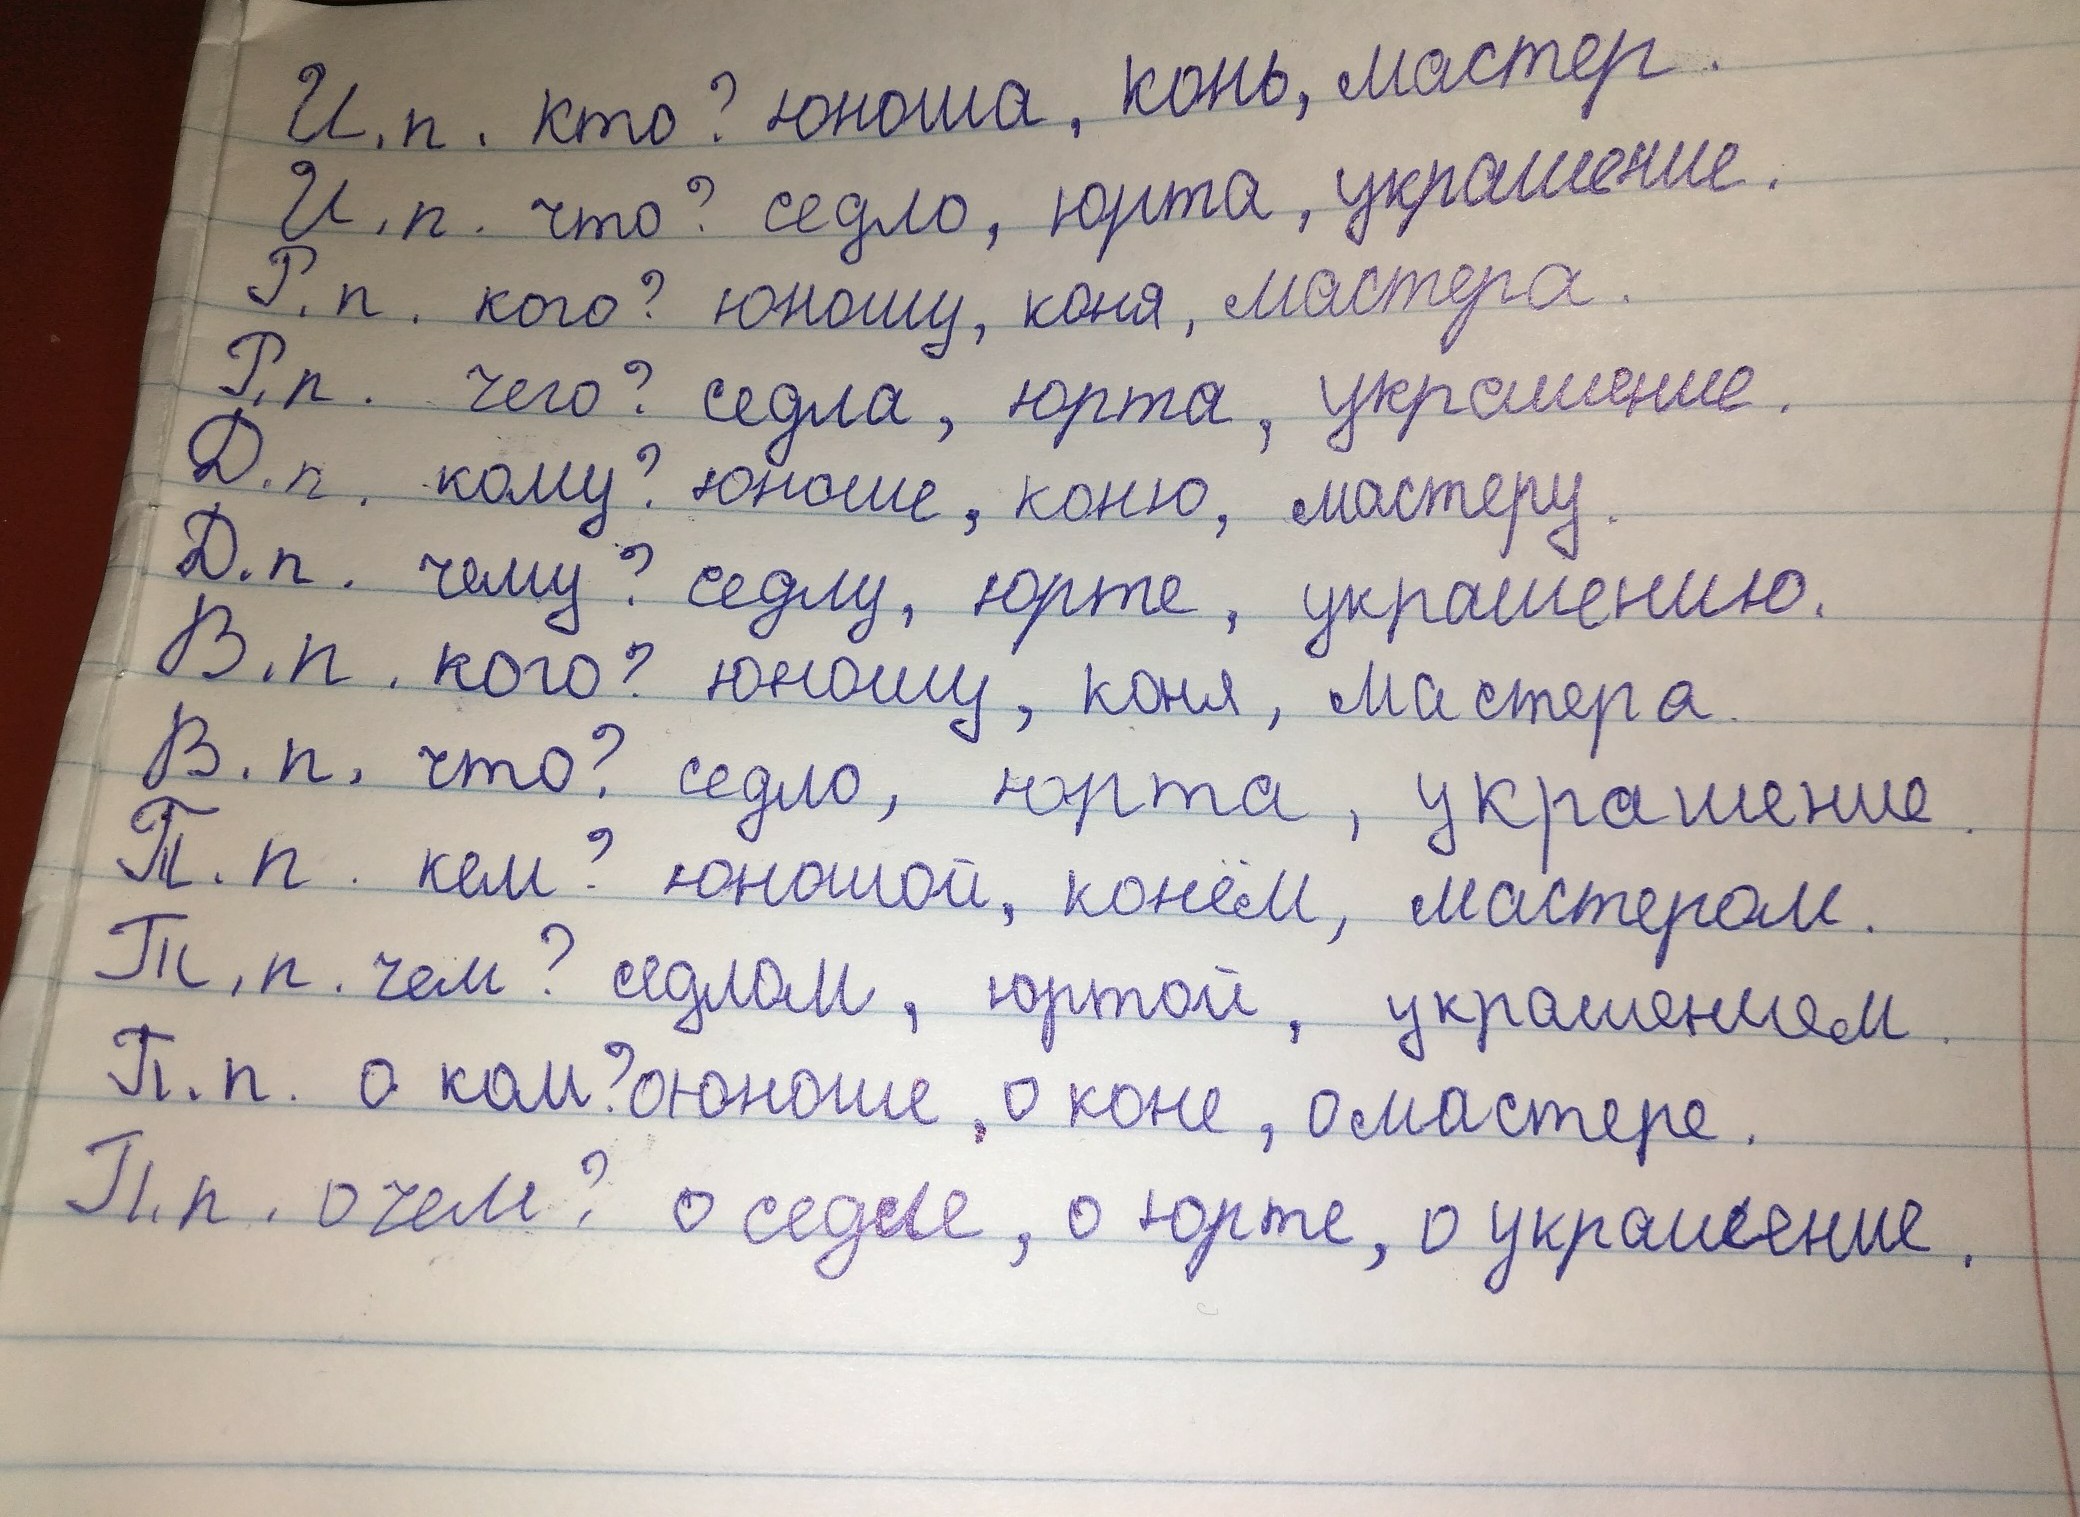 И.п. кто? юноша, конь, мастер.
И.п. что? седло, юрта, украшение.
Р.п. кого? юношу, коня, мастера.
Р.п. чего? седла, юрта, украшение.
Д.п. кому? юноше, коню, мастеру.
Д.п. чему? седлу, юрте, украшению.
В.п. кого? юношу, коня, мастера.
В.п. что? седло, юрта, украшение.
Т.п. кем? юношой, конём, мастером.
Т.п. чем? седлом, юртой, украшением.
П.п. о ком? о юноше, о коне, о мастере.
П.п. о чем? о седле, о юрте, о украшение.